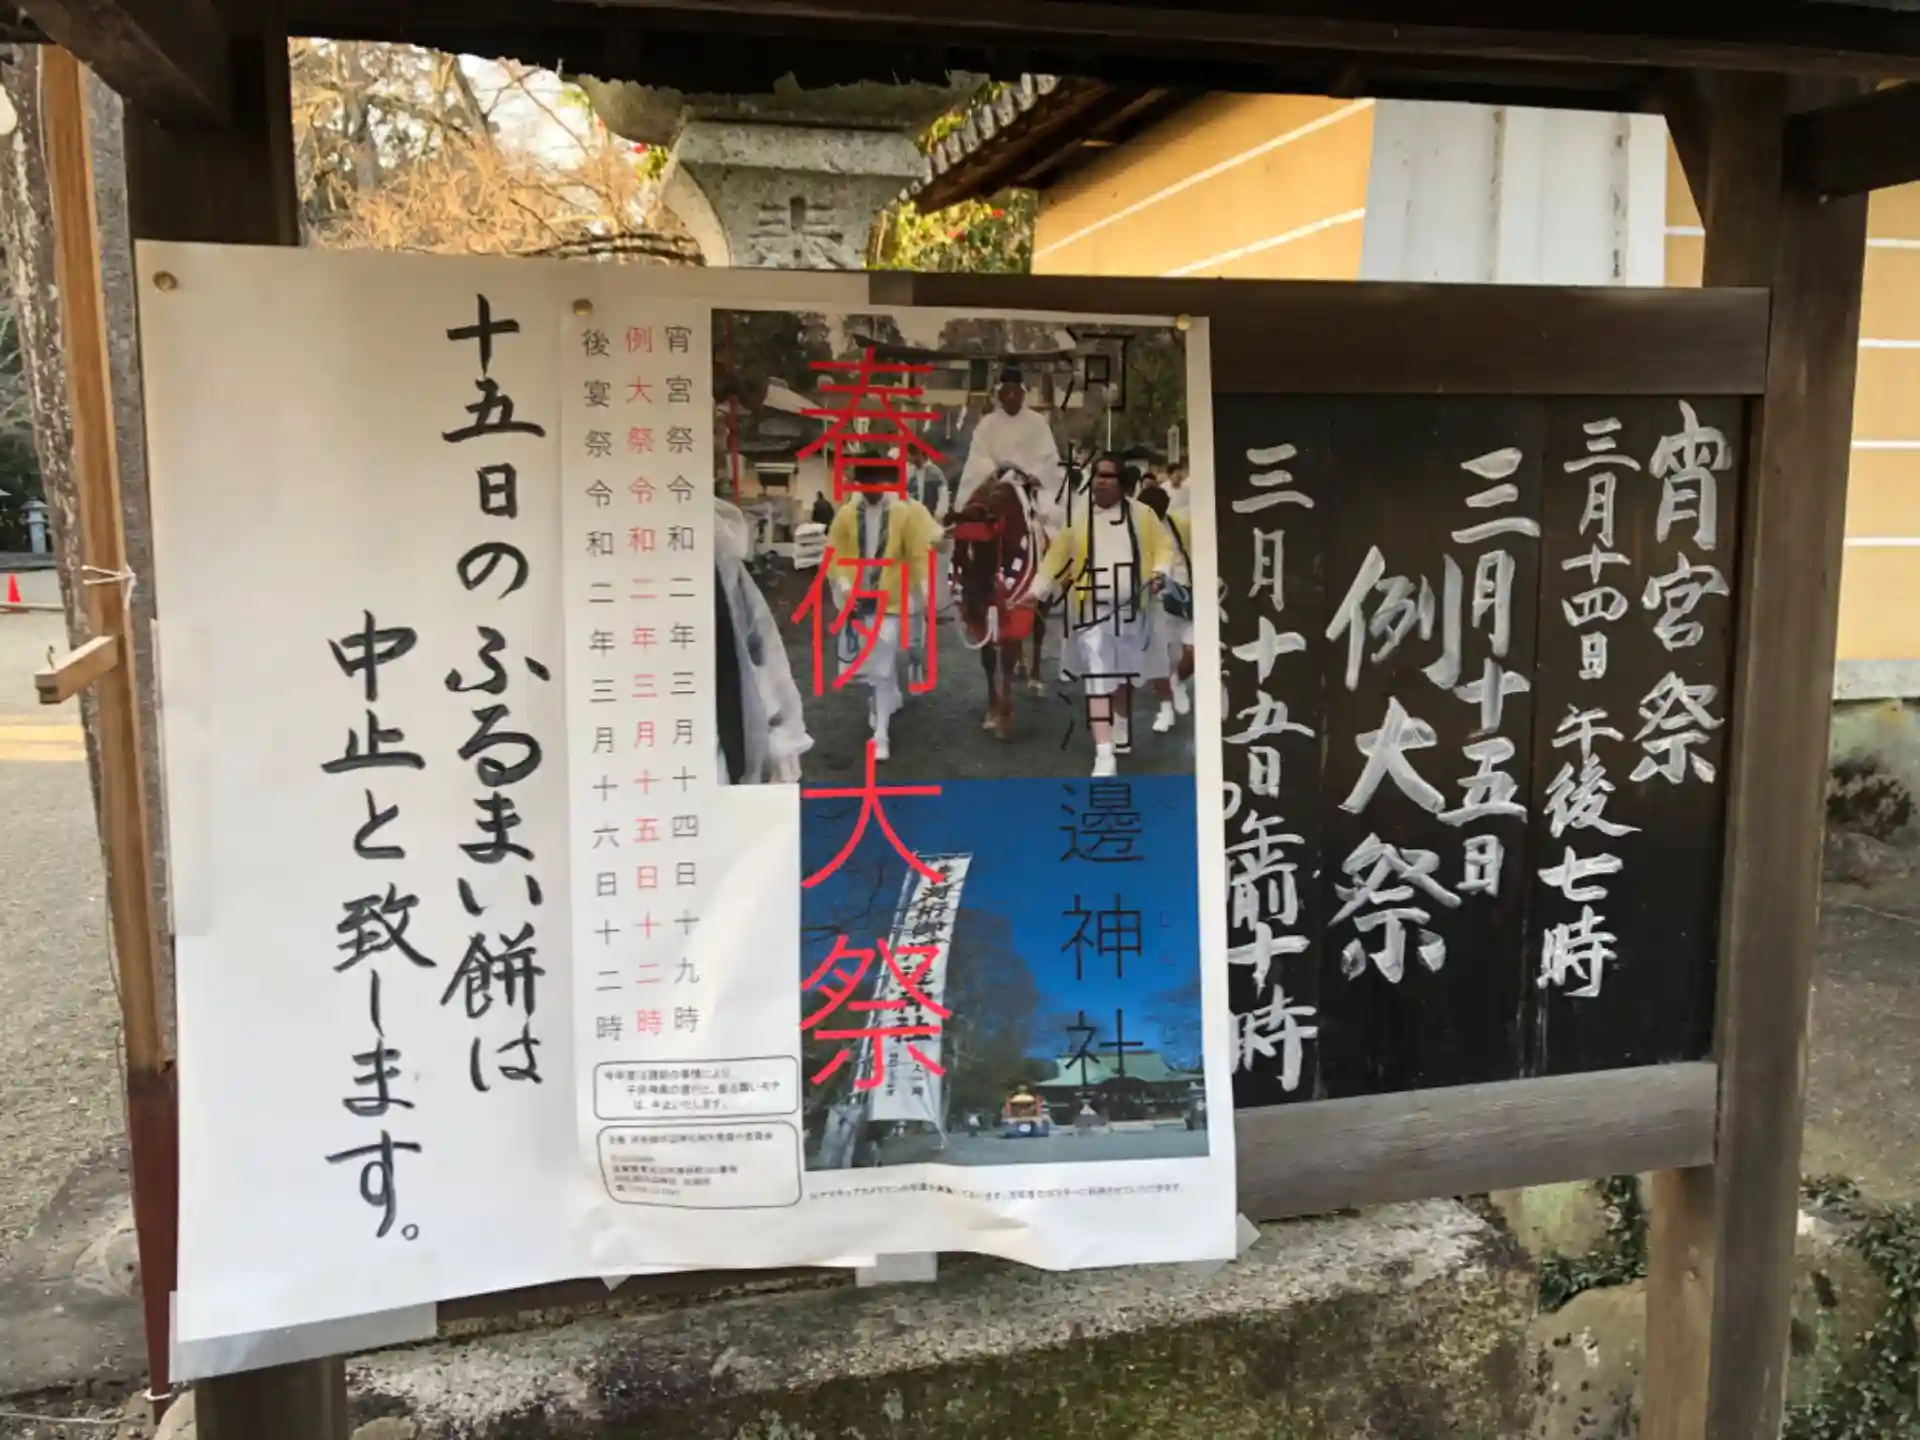 宵宮祭
三月十四日 午後七時
三月十五日
例大祭
三月十五日 午前十時
河桁御河邊神社
春例大祭
宵宮祭令和二年三月十四日十九時
例大祭令和二年三月十五日十二時
後宴祭令和二年三月十六日十二時
十五日のふるまい餅は
中止と致します。